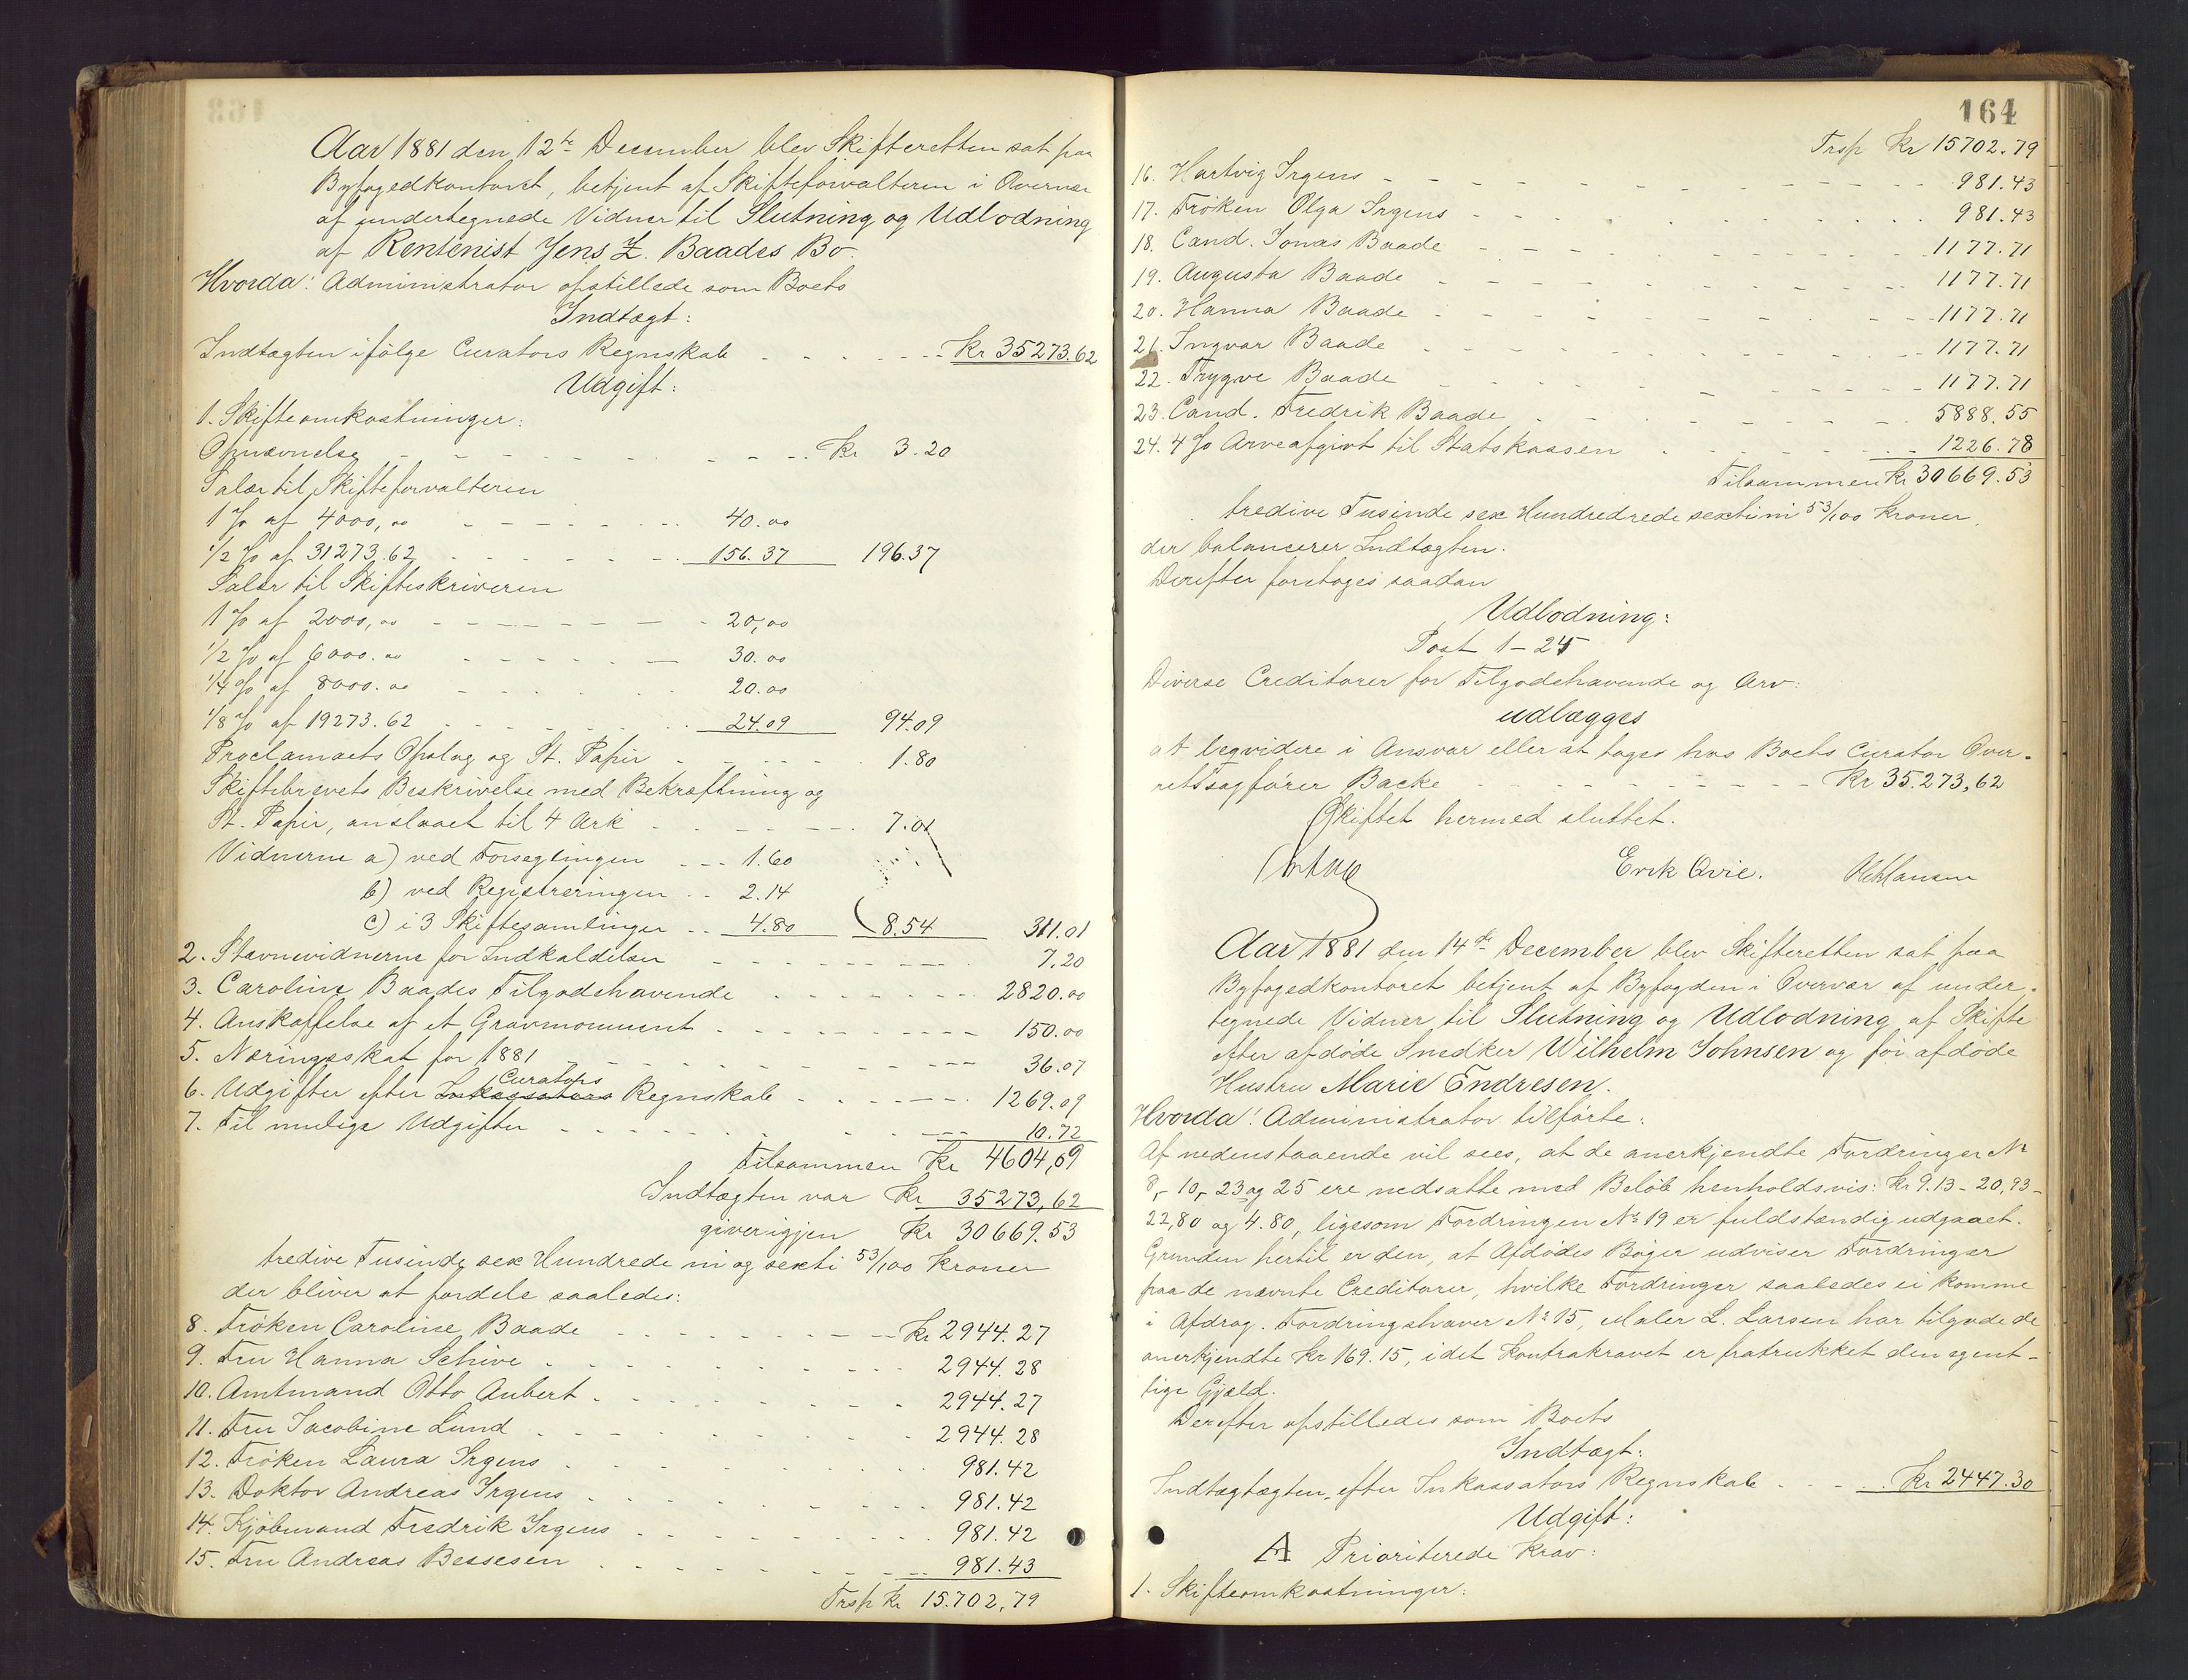 Aar 1881 den 12te December blev Skifteretten sat paa
Byfogedkontoret, betjent af Skifteforvalteren i Overvær
af undertegnede Vidner til Slutning og Udlodning
af Rentenist Jens Z. Baades Bo.
Hvorda! Administrator opstillede som Boets
Indtægt:
Indtægten ifølge Curators Regnskab - - - Kr 35273.62
Udgift:
1. Skifteomkostninger:
Opnævnelse - - - Kr 3.20
Salær til Skifteforvalteren
1 % af 4000,00 - - - 40.00
1/2 % af 31273.62 - - - 156.37 196.37
Salær til Skifteskriveren
1 % af 2000,00 - - - 20,00
1/2 % af 6000.00 - - - 30.00
1/4 % af 8000.00 - - - 20.00
1/8 % af 19273.62 - - - 24.09 94.09
Proclamaets Opslag og St. Papir - - - 1.80
Skiftebrevets Beskrivelse med Bekræftning og
St. Papir, anslaaet til 4 Ark - - - 7.01
Vidnerne a) ved Forseglingen - - - 1.60
b) ved Registreringen - - 2.14
c) i 3 Skiftesamlinger - - 4.80 8.54 311.01
2. Stævnevidnerne for Indkaldelsen - - - 7.20
3. Caroline Baades Tilgodehavende - - - 2820.00
4. Anskaffelse af et Gravmonument - - - 150.00
5. Næringsskat for 1881 - - - 36.07
Curators
6. Udgifter efter Inkassators Regnskab - - - 1269.09
7. Til mulige Udgifter - - - 10.72
Tilsammen Kr 4604,09
Indtægten var Kr 35273,62
giver igjen Kr 30669.53
tredive Tusinde sex Hundrede ni og sexti 53/100 Kroner
der bliver at fordele saaledes:
8. Frøken Caroline Baade - - - Kr 2944.27
9. Fru Hanna Schive - - - 2944.28
10. Amtmand Otto Aubert - - - 2944.27
11. Fru Jacobine Lund - - - 2944.28
12. Frøken Laura Irgens - - - 981.42
13. Doktor Andreas Irgens - - - 981.42
14. Kjøbmand Fredrik Irgens - - - 981.42
15. Fru Andreas Bessesen - - - 981.43
Trsp Kr 15.702,79
164
Trsp Kr 15702.79
16. Hartvig Irgens - - - 981.43
17. Frøken Olga Irgens - - - 981.43
18. Cand. Jonas Baade - - - 1177.71
19. Augusta Baade - - - 1177.71
20. Hanna Baade - - - 1177.71
21. Ingvar Baade - - - 1177.71
22. Trygve Baade - - - 1177.71
23. Cand. Fredrik Baade - - - 5888.55
24. 4 % Arveafgivt til Statskassen - - - 1226.78
Tilsammen Kr 30669.53
tredive Tusinde sex Hundredrede sextini 53/100 Kroner,
der balancerer Indtægten.
Derefter foretoges saadan
Udlodning:
Post 1 - 24
Diverse Creditorer for Tilgodehavende og Arv:
udlægges
at leqvidere i Ansvar eller at tages hos Boets Curator Over-
retssagfører Backe - - - Kr 35.273,62
Skiftet hermed sluttet.
Erik Qvie.
Aar 1881 den 14de December blev Skifteretten sat paa
Byfogedkontoret betjent af Byfogden i Overvær af under-
tegnede Vidner til Slutning og Udlodning af Skifte
efter afdøde Snedker Wilhelm Johnsen og før afdøde
Hustru Marie Endresen.
Hvorda! Administrator tilførte:
Af nedenstaaende vil sees, at de anerkjendte Fordringer No
8,- 10,- 23 og 25 ere nedsatte med Beløb henholdsvis: Kr 9.13 - 20,93 -
22,80 og 4.80, ligesom Fordringen No 19 er fuldstændig udgaaet.
Grunden hertil er den, at Afdødes Bøger udviser Fordringer
paa de nævnte Creditorer, hvilke Fordringer saaledes ei komme
i Afdrag. Fordringshaver No 15, Maler L. Larsen har tilgode de
anerkjendte Kr 169.15, idet Kontrakravet er fratrukket den egent-
lige Gjæld.
Derefter opstilledes som Boets
Indtægt:
Indtægtægten, efter Inkassators Regnskab - - - Kr 2447.30
Udgift:
A Prioriterede Krav:
1. Skifteomkostninger: